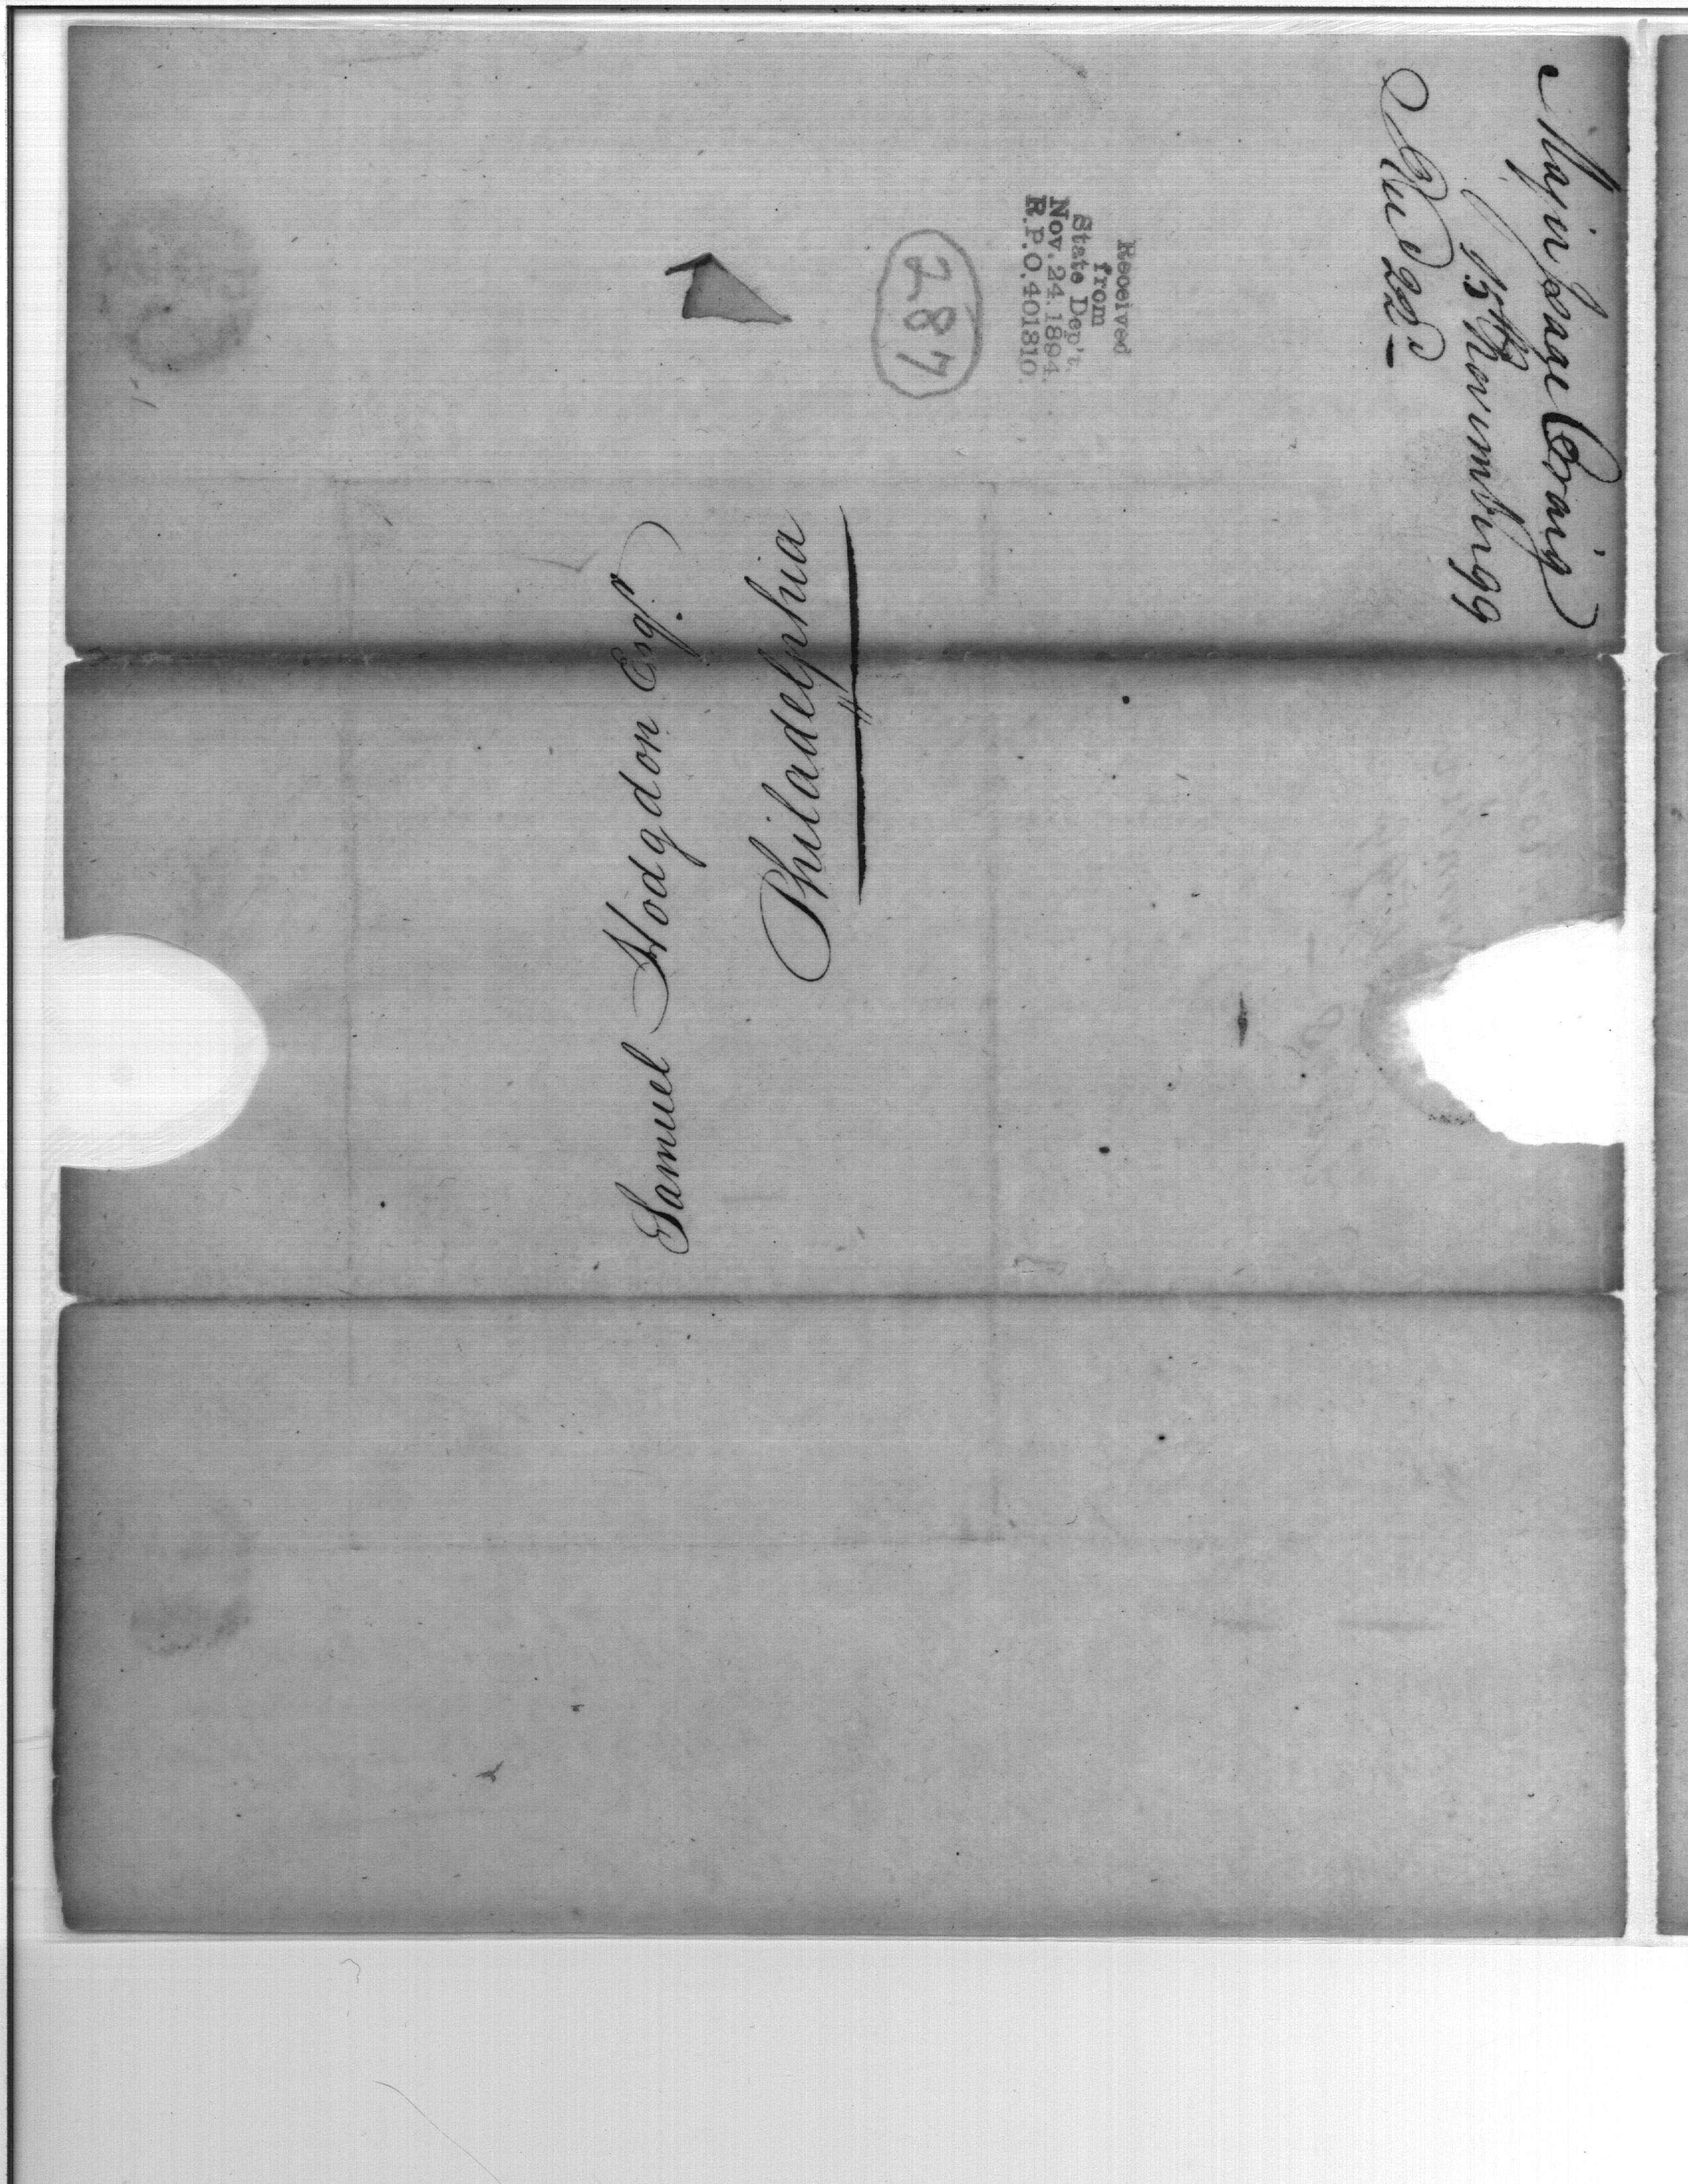 Major Isaac Craig
15th November 99
Recd 22d —
Received
from
State Dep't.
Nov. 24. 1894.
R.P.O. 401310.
287
Samuel Hodgdon Esqr.
Philadelphia